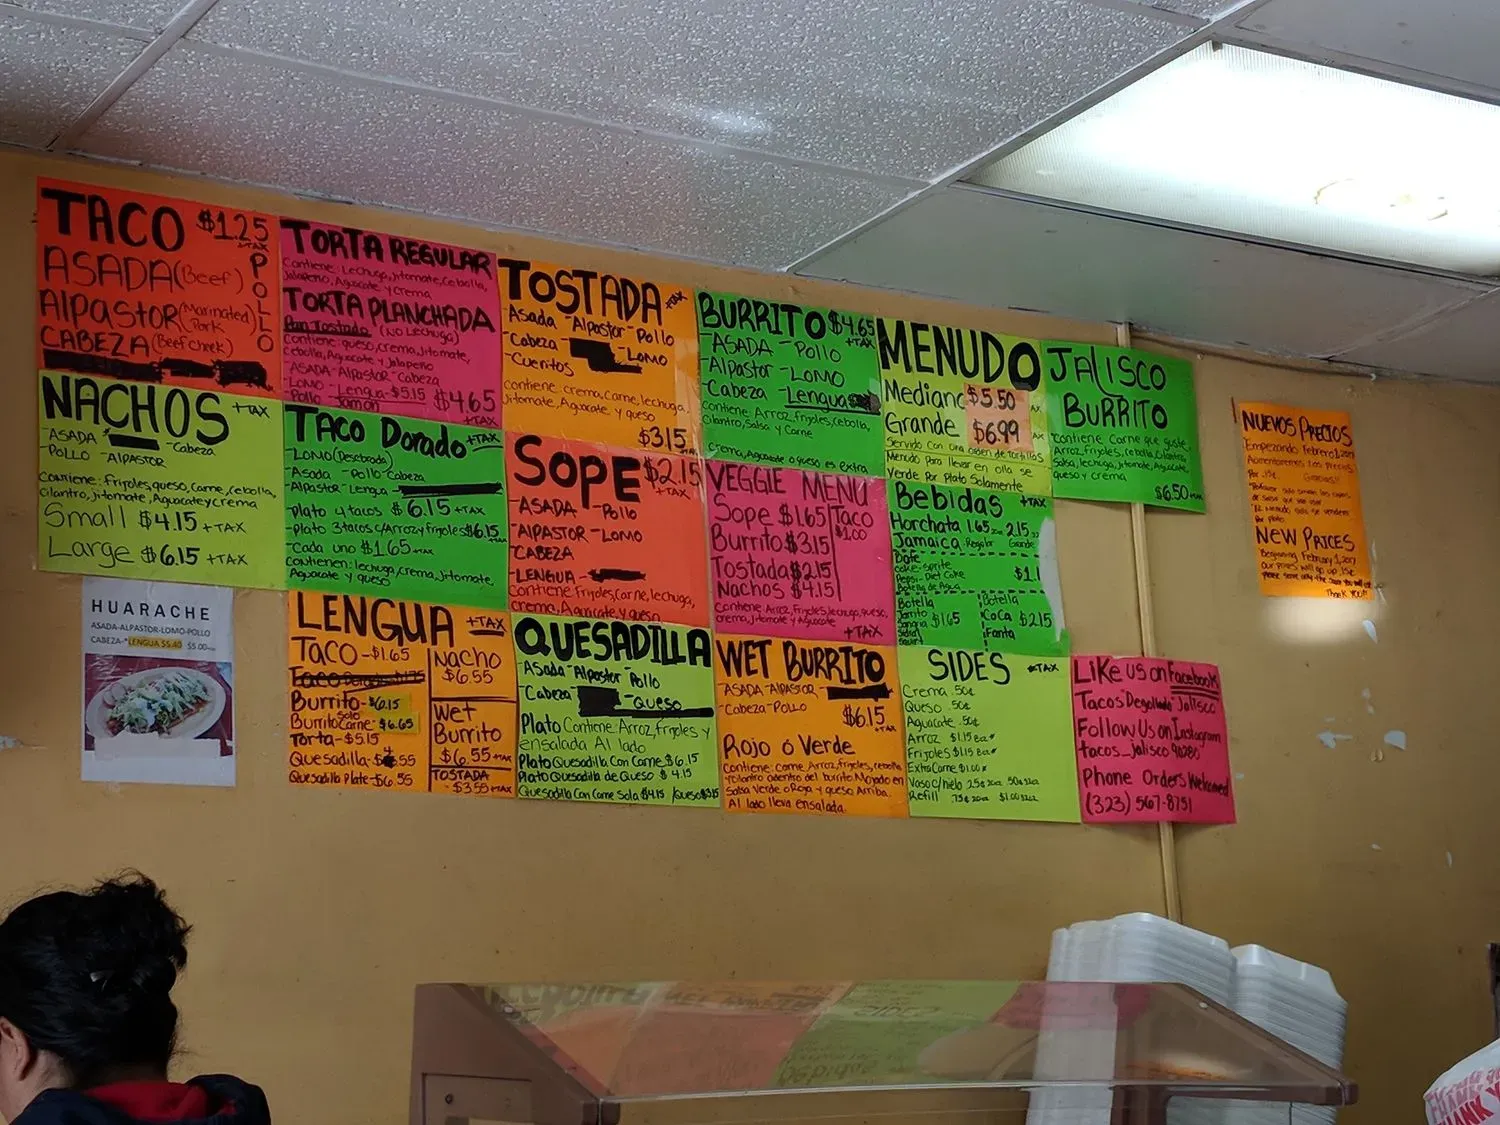 TACO $1.25
+TAX
ASADA (Beef)
Alpastor (Marinated Pork)
CABEZA (Beef cheek)
POLLO
NACHOS +TAX
-ASADA -Cabeza
-Pollo -Alpastor
Contiene: Frijoles, queso, carne, cebolla,
cilantro, jitomate, Aguacate y crema
Small $4.15 +TAX
Large $6.15 +TAX
HUARACHE
ASADA-ALPASTOR-LOMO-POLLO
CABEZA-*LENGUA $5.40 $5.00
TORTA REGULAR
Contiene: Lechuga, jitomate, cebolla,
jalapeño, Aguacate y crema
TORTA PLANCHADA
Pan Tostado (NO Lechuga)
Contiene: queso, crema, jitomate,
cebolla, Aguacate y jalapeño
-ASADA -Alpastor -Cabeza
-LOMO -Lengua-$5.15
-Pollo -Jamon $4.65
+TAX
TACO Dorado +TAX
-LOMO (Desebrada)
-Asada -Pollo -Cabeza
-Alpastor -Lengua
-Plato 4 tacos $6.15 +TAX
-Plato 3 tacos c/Arroz y frijoles $6.15
-Cada uno $1.65 +TAX
Contienen: lechuga, crema, jitomate,
Aguacate y queso
LENGUA +TAX
Taco-$1.65
Burrito-$6.15
Burrito solo Carne-$6.65
Torta-$5.15
Quesadilla-$4.55
Quesadilla Plate-$6.55
Nacho
$6.55
Wet
Burrito
$6.55 +TAX
TOSTADA
-$3.55 +TAX
TOSTADA +TAX
-Asada -Alpastor -Pollo
-Cabeza -LOMO
-Cueritos
Contiene: crema, carne, lechuga,
jitomate, Aguacate y queso
$3.15
SOPE $2.15
+TAX
-ASADA -Pollo
-ALPASTOR -LOMO
-CABEZA
-LENGUA
Contiene Frijoles, Carne, lechuga,
crema, Aguacate y queso
QUESADILLA
-Asada -Alpastor -Pollo
-Cabeza -Queso
Plato Contiene Arroz, frijoles y
ensalada Al lado
Plato Quesadilla Con Carne $6.15
Plato Quesadilla de Queso $4.15
Quesadilla Con Carne Sola $4.15 /Queso $3.15
BURRITO $4.65
+TAX
-ASADA -Pollo
-Alpastor -LOMO
-Cabeza -Lengua
Contiene Arroz, frijoles, cebolla,
cilantro, Salsa y Carne
Crema, Aguacate o queso es extra
VEGGIE MENU
Sope $1.65
Taco
$1.00
Burrito $3.15
Tostada $2.15
Nachos $4.15
Contiene: Arroz, Frijoles, lechuga, queso,
crema, jitomate y Aguacate
+TAX
WET BURRITO
-ASADA -ALPASTOR
-Cabeza -Pollo
$6.15
+TAX
Rojo ó Verde
Contiene: carne, Arroz, frijoles, cebolla
cilantro adentro del burrito Mojado en
Salsa Verde o Roja y queso Arriba.
Al lado lleva ensalada.
MENUDO
Mediano $5.50
Grande $6.99
Servido con una orden de tortillas
Menudo Para llevar en olla se
Vende Por Plato Solamente
Bebidas +TAX
Horchata 1.65 2.15
Jamaica Regular Grande
Coke-Sprite
Pepsi-Diet Coke $1.
Botella de Agua
Botella
Jarrito
Sangria $1.65
Sidral
Squirt
Botella
CoCa $2.15
Fanta
SIDES +TAX
Crema .50¢
Queso .50¢
Aguacate .50¢
Arroz $1.15 8oz
Frijoles $1.15 8oz
Extra Carne $1.00
Vaso c/hielo 25¢ 20oz 50¢ 32oz
Refill .75¢ 20oz $1.00 32oz
JALISCO
BURRITO
Contiene Carne que guste,
Arroz, Frijoles, cebolla, Cilantro,
Salsa, lechuga, jitomate, Aguacate,
queso y crema
$6.50 +TAX
LIKE US on Facebook
Tacos "Degollado" Jalisco
Follow Us on Instagram
tacos_jalisco 90280
Phone Orders Welcomed
(323) 567-8751
NUEVOS PRECIOS
Empezando Febrero 1, 2017
Aumentaremos los precios
Por .15¢
NEW PRICES
Beginning February 1, 2017
Our prices will go up .15¢
Thank You!!
THANK